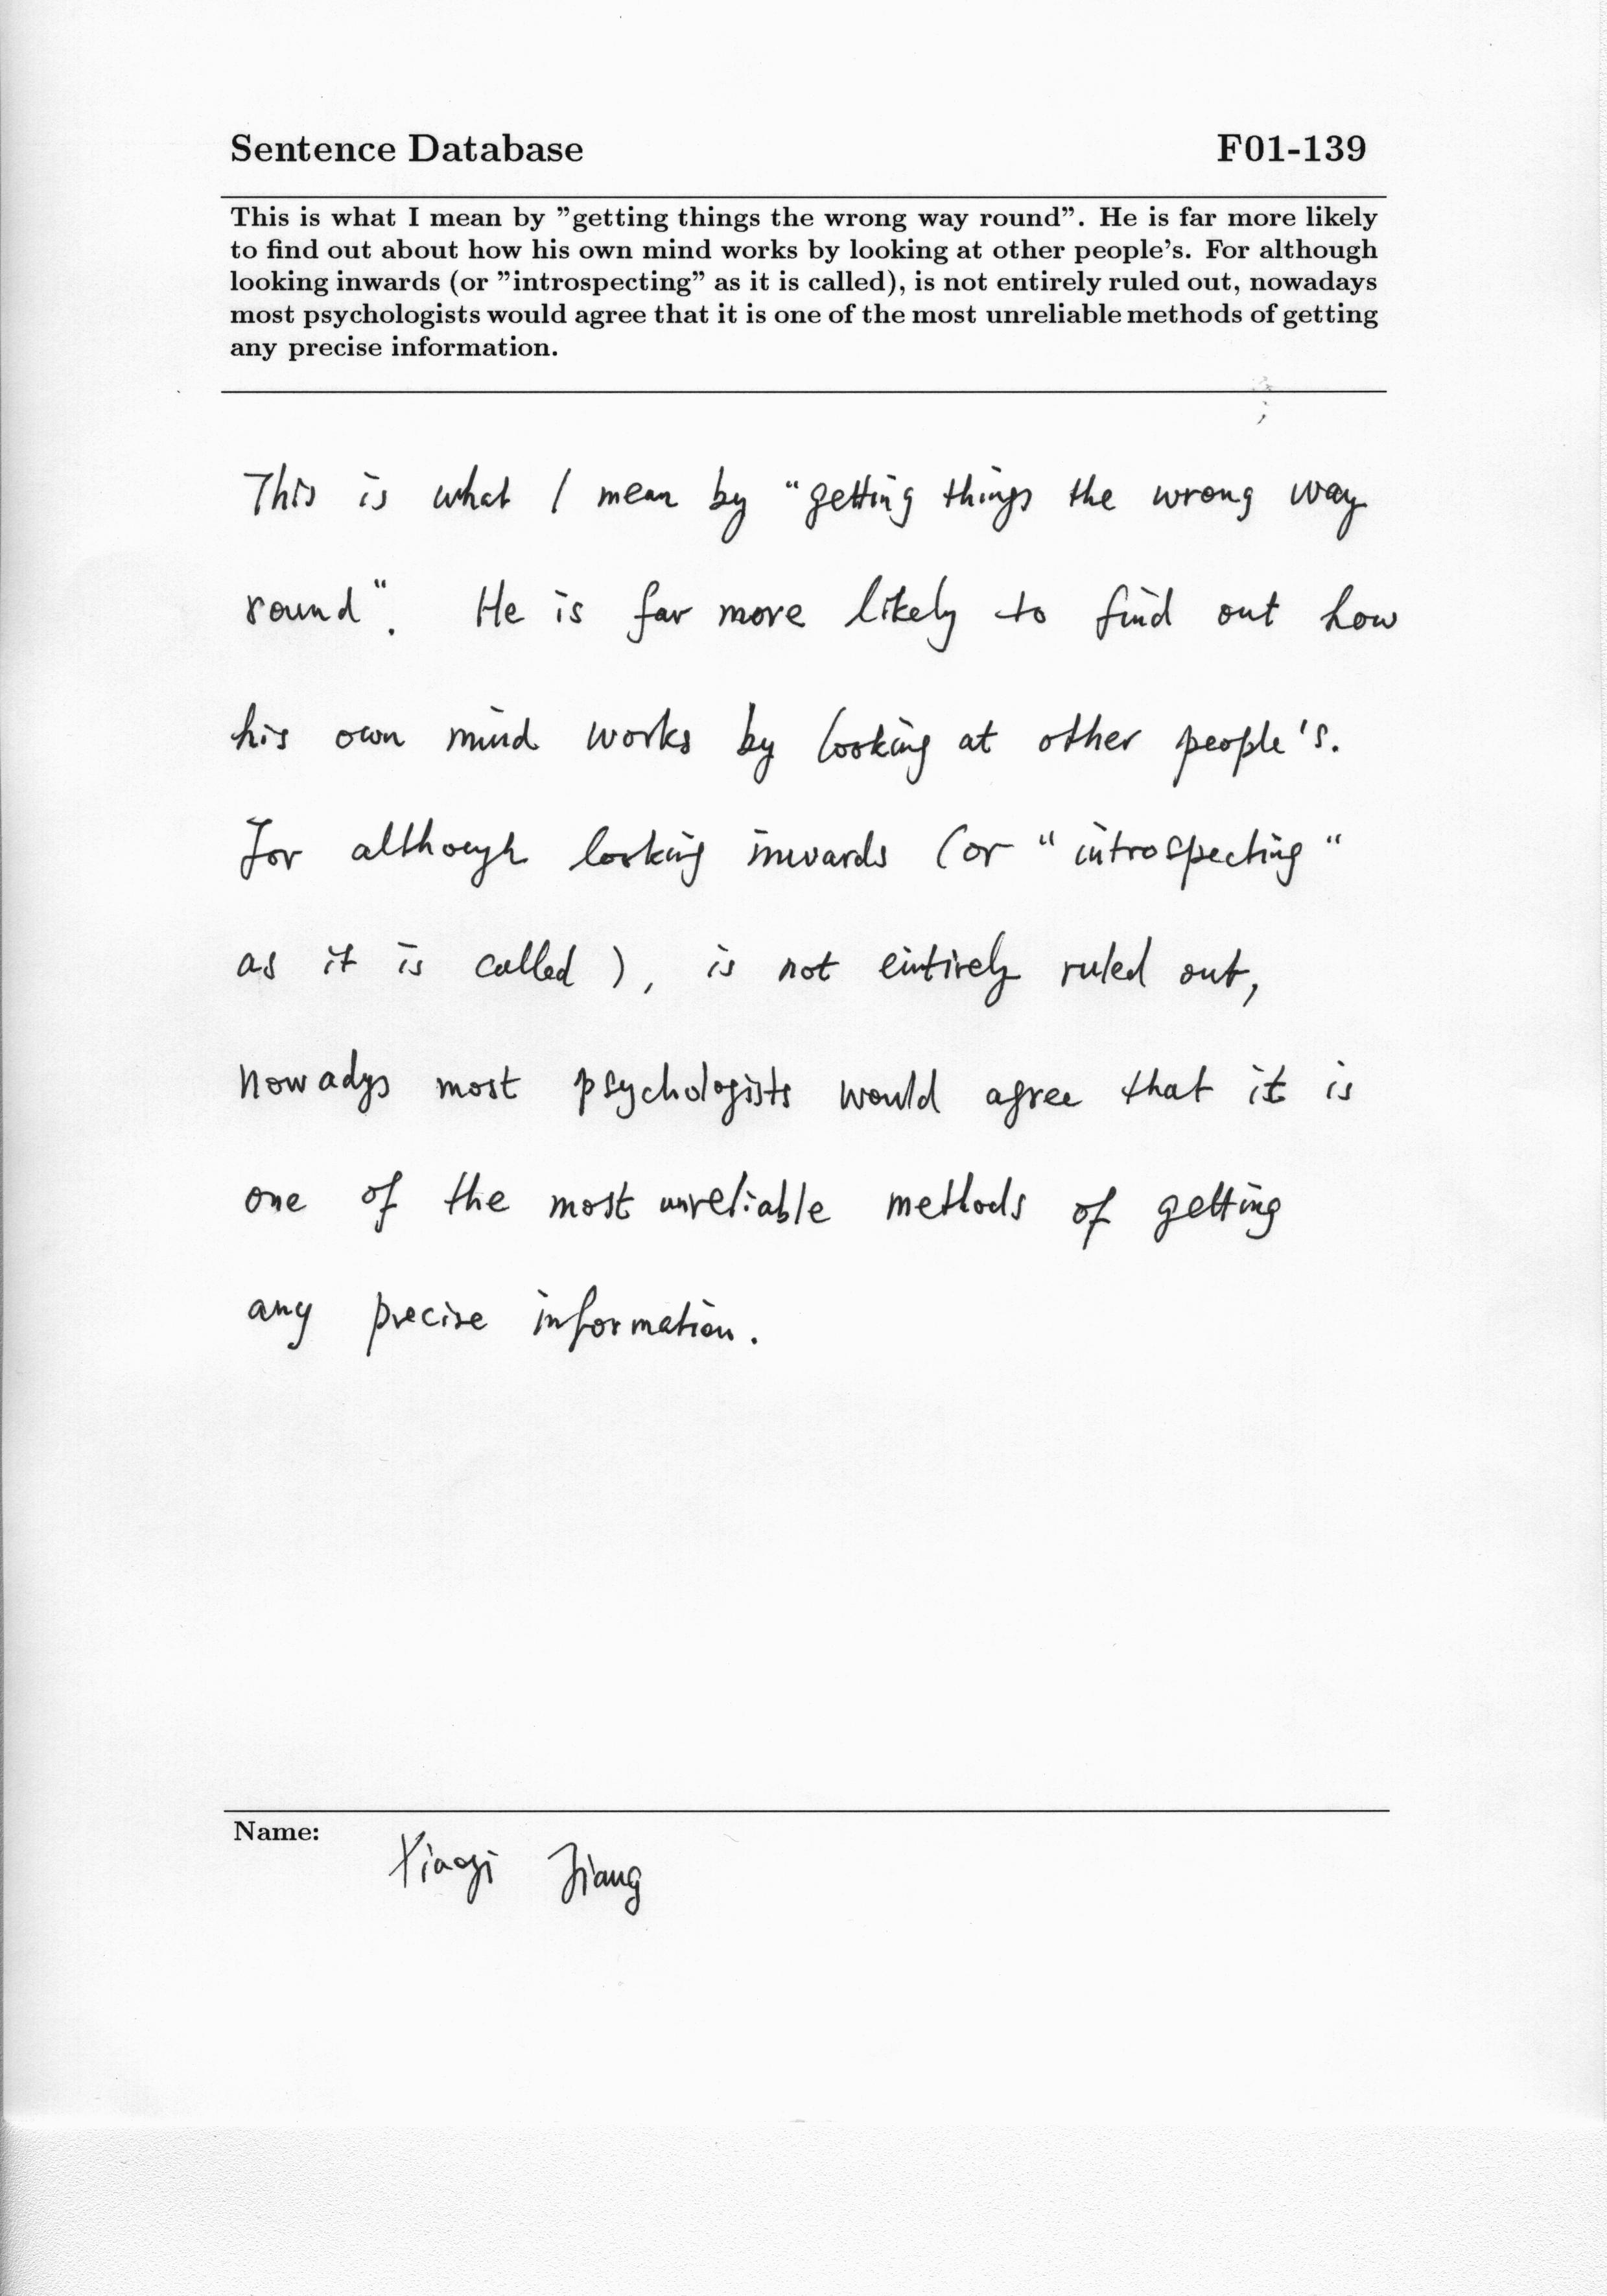 Sentence Database F01-139
This is what I mean by ”getting things the wrong way round”. He is far more likely
to find out about how his own mind works by looking at other people’s. For although
looking inwards (or ”introspecting” as it is called), is not entirely ruled out, nowadays
most psychologists would agree that it is one of the most unreliable methods of getting
any precise information.
This is what I mean by “getting things the wrong way
round“. He is far more likely to find out how
his own mind works by looking at other people's.
For although looking inwards (or “introspecting“
as it is called), is not entirely ruled out,
nowadys most psychologists would agree that it is
one of the most unreliable methods of getting
any precise information.
Name: Xiaoyi Jiang